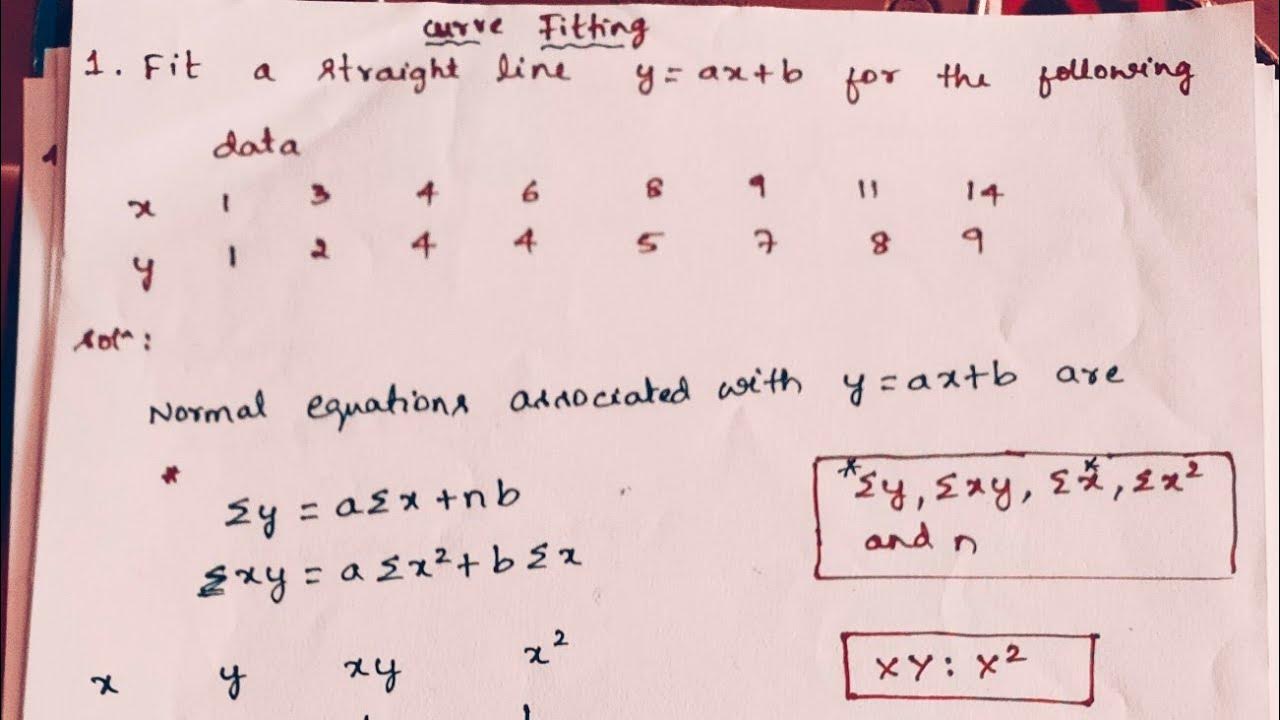 curve Fitting
1. Fit a straight line y = ax + b for the following
data
x 1 3 4 6 8 9 11 14
y 1 2 4 4 5 7 8 9
soln:
Normal equations associated with y = ax + b are
*
Σy = aΣx + nb
Σxy = aΣx² + bΣx
*Σy, Σxy, Σx, Σx²
and n
x y xy x²
XY : X²